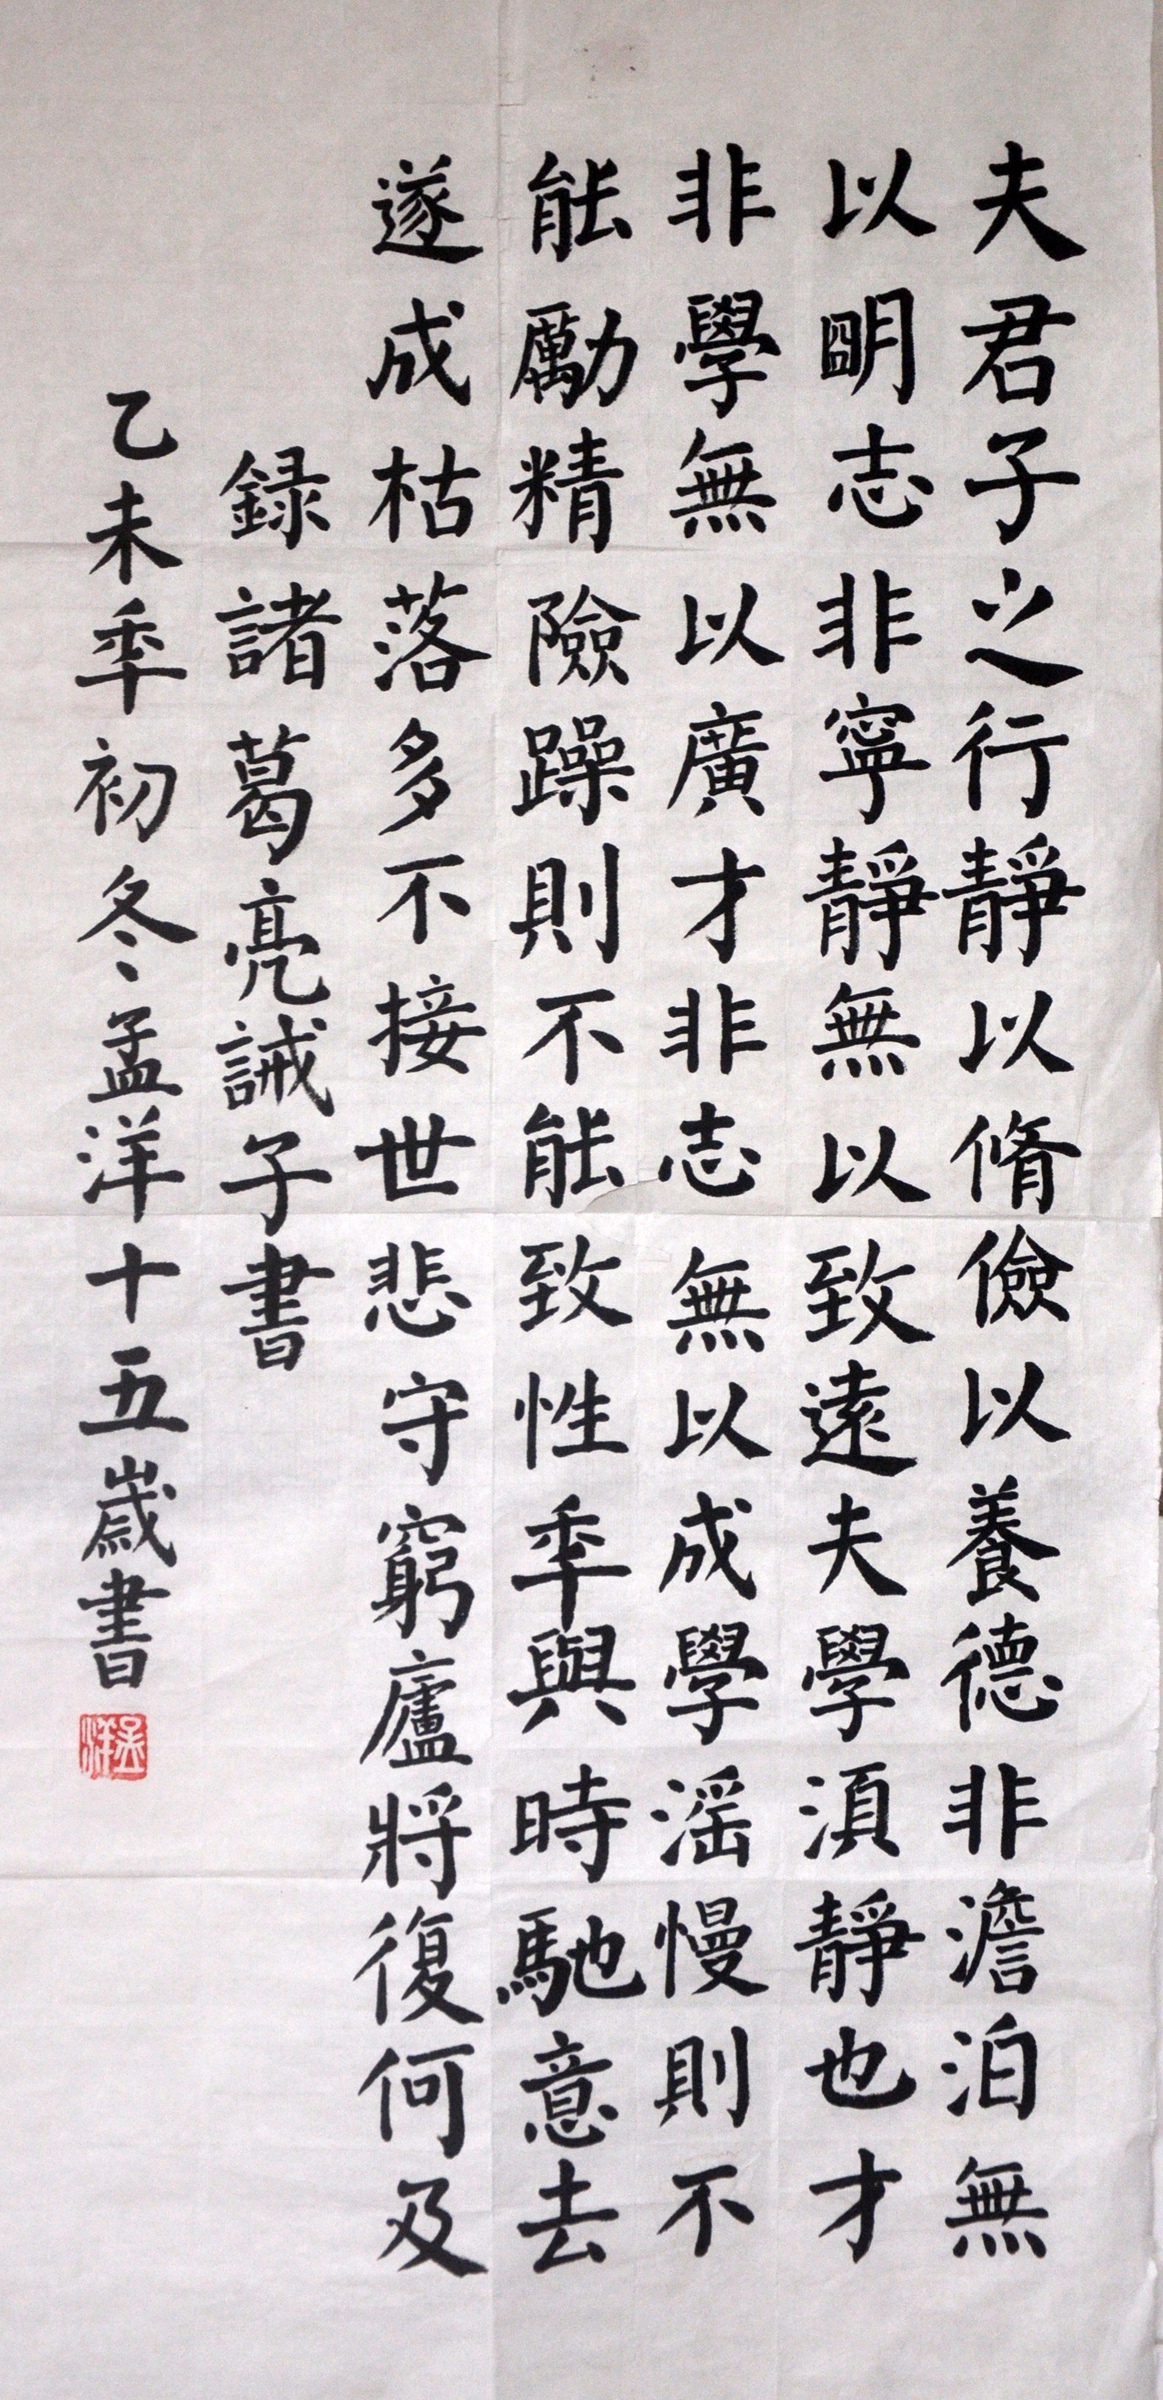 夫君子之行靜以脩儉以養德非澹泊無
以明志非寧靜無以致遠夫學湏靜也才
非學無以廣才非志無以成學滛慢則不
能勵精險躁則不能致性秊與時馳意去
遂成枯落多不接世悲守窮廬將復何及
録諸葛亮誡子書
乙未秊初冬孟洋十五歲書
孟洋